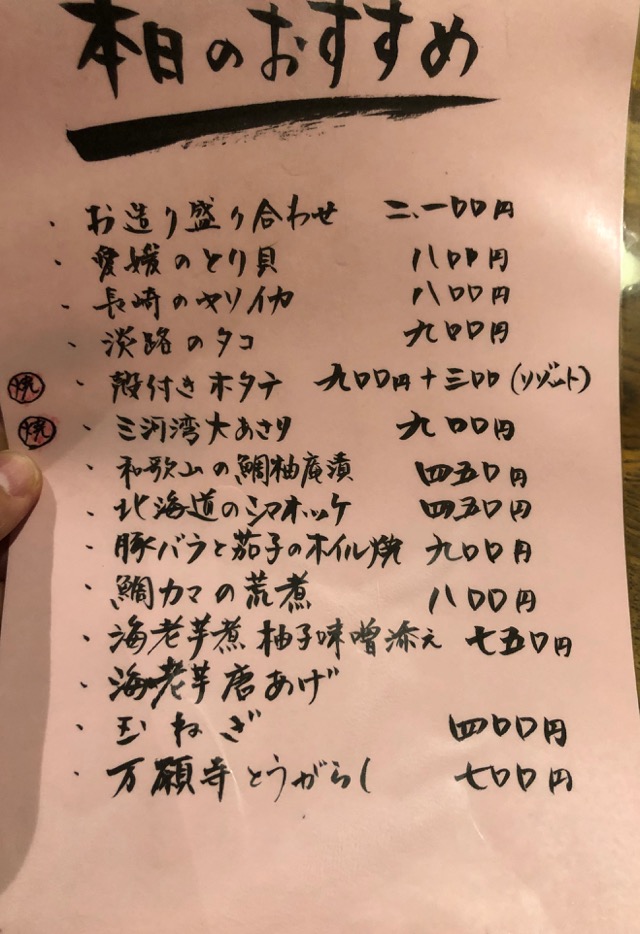 本日のおすすめ
・お造り盛り合わせ 二、一〇〇円
・愛媛のとり貝 八〇〇円
・長崎のヤリイカ 八〇〇円
・淡路のタコ 九〇〇円
焼 ・殻付きホタテ 九〇〇円+三〇〇(リゾット)
焼 ・三河湾大あさり 九〇〇円
・和歌山の鯛柚庵漬 四五〇円
・北海道のシマホッケ 四五〇円
・豚バラと茄子のホイル焼 九〇〇円
・鯛カマの荒煮 八〇〇円
・海老芋煮 柚子味噌添え 七五〇円
・海老芋唐あげ
・玉ねぎ 四〇〇円
・万願寺とうがらし 七〇〇円